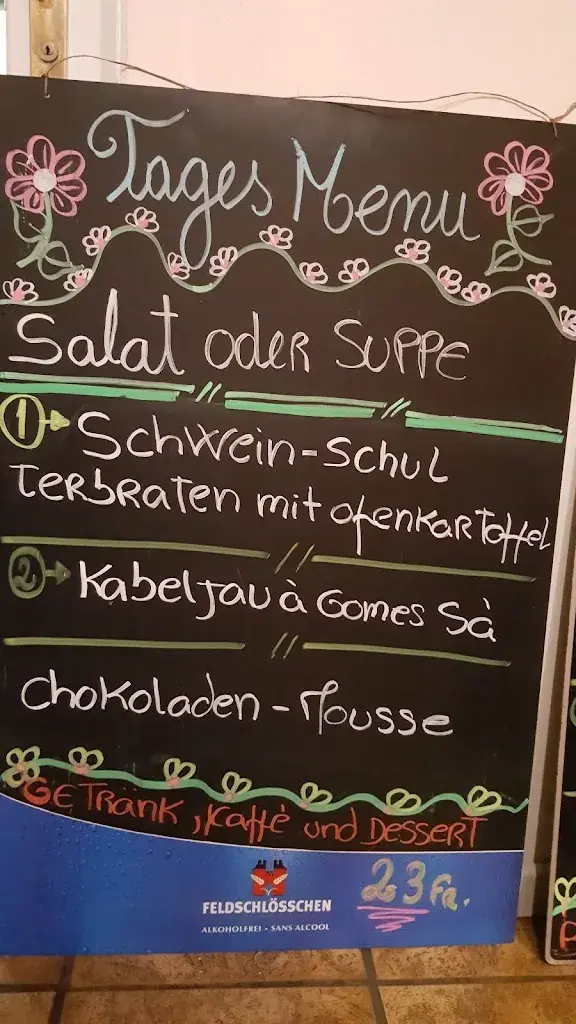 Tages Menu
Salat oder Suppe
1 Schwein-Schul
terbraten mit ofenkartoffel
2 Kabeljau à Gomes Sà
Chokoladen-Mousse
Getränk, Kaffè und Dessert
23 Fr.
FELDSCHLÖSSCHEN
ALKOHOLFREI • SANS ALCOOL